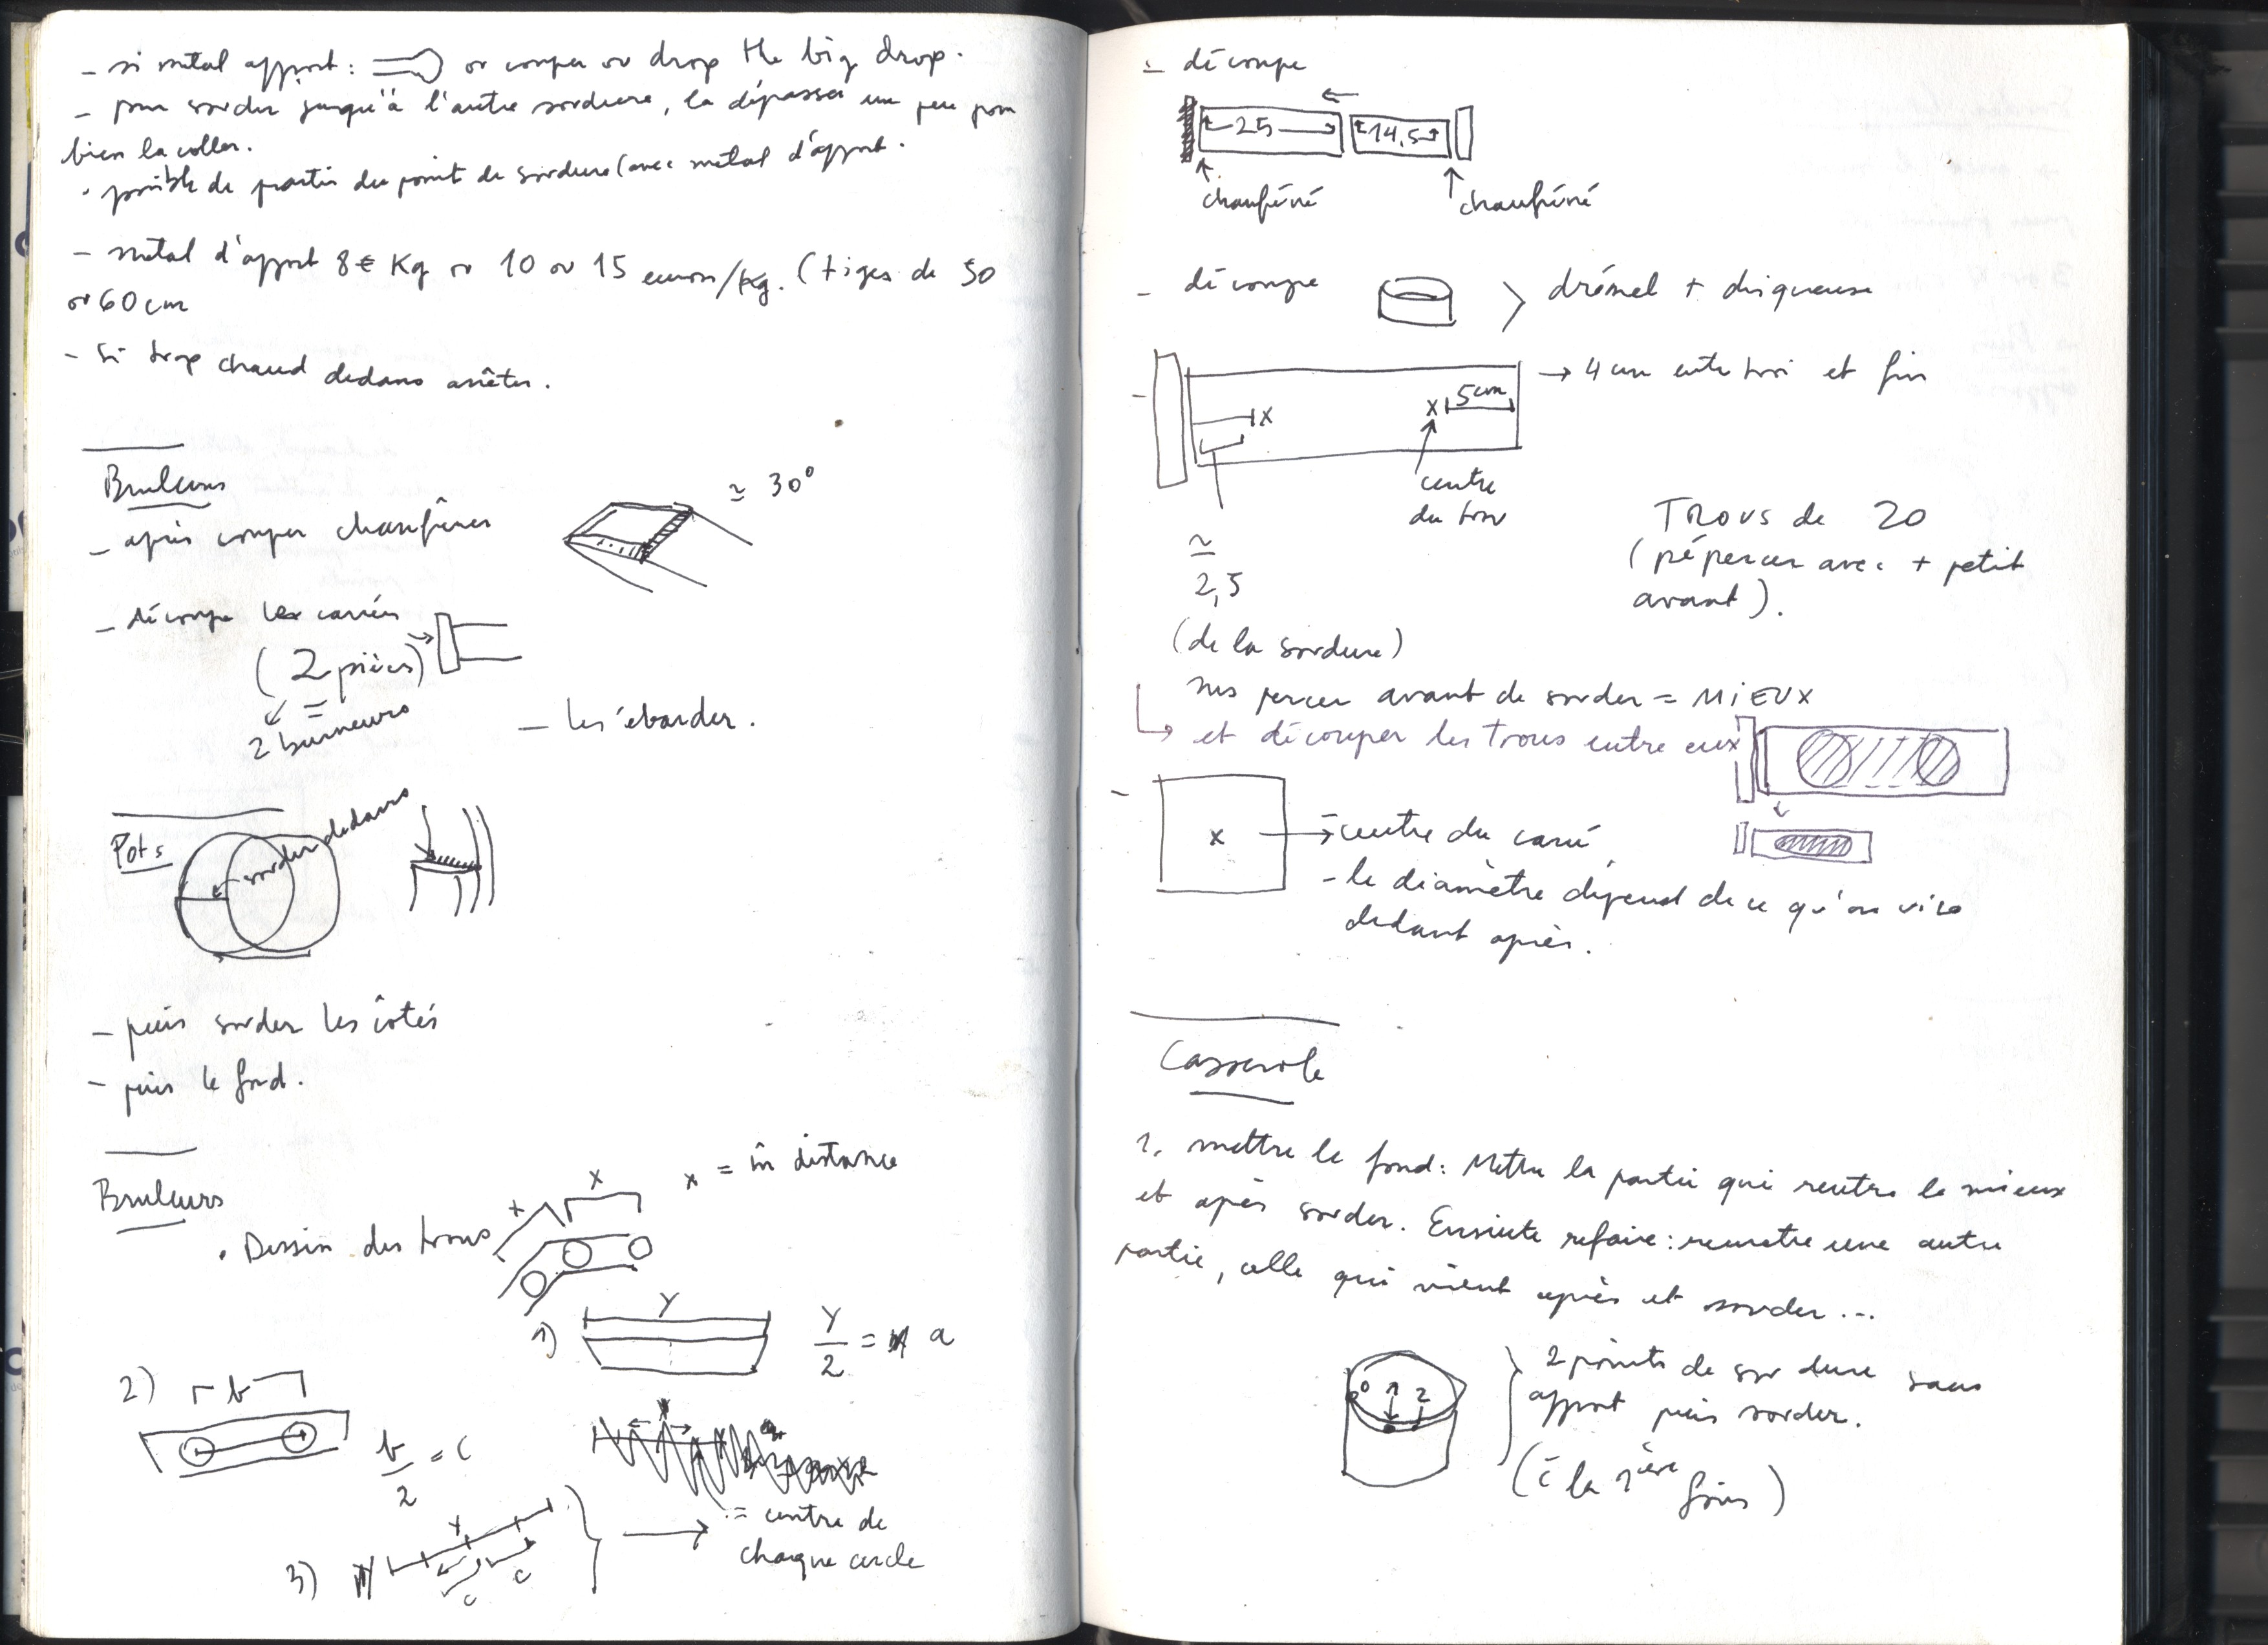 - si métal apport : or couper ou drop the big drop.
- pour souder jusqu'à l'autre soudure, la dépasser un peu pour
bien la coller.
• possible de partir du point de soudure (avec métal d'apport.
- métal d'apport 8€ Kg ou 10 ou 15 euros/kg. (tiges de 50
or 60cm
- Si trop chaud dedans arrêter.
Bruleurs
- après couper chanfêner
≃ 30°
- découpe les carrés
(2 pièces)
=
2 burneurs
- les ébarder.
Pots
souder dedans
- puis souder les côtés
- puis le fond.
Bruleurs
• Dessin des trous
x
x
x = m̂ distance
1)
Y
Y/2 = a
2)
b
b/2 = c
3)
Y
c
c
:= centre de
chaque cercle
- découpe
25
14,5
chanféné
chanféné
- découpe
drémel + disqueuse
-
x
x
5cm
→ 4 cm entre trou et fin
centre
du trou
≃
2,5
(de la soudure)
TROUS de 20
(pépercer avec + petit
avant).
percer avant de souder = MiEUX
et découper les trous entre eux
-
x
- centre du carré
- le diamètre dépend de ce qu'on viss
dedant après.
Casserole
1. mettre le fond: Mettre la partie qui rentre le mieux
et après souder. Ensuite refaire: remetre une autre
partie, celle qui vient après et souder...
1
2
2 points de soudure sans
apport puis souder.
(à la 1ière fois)